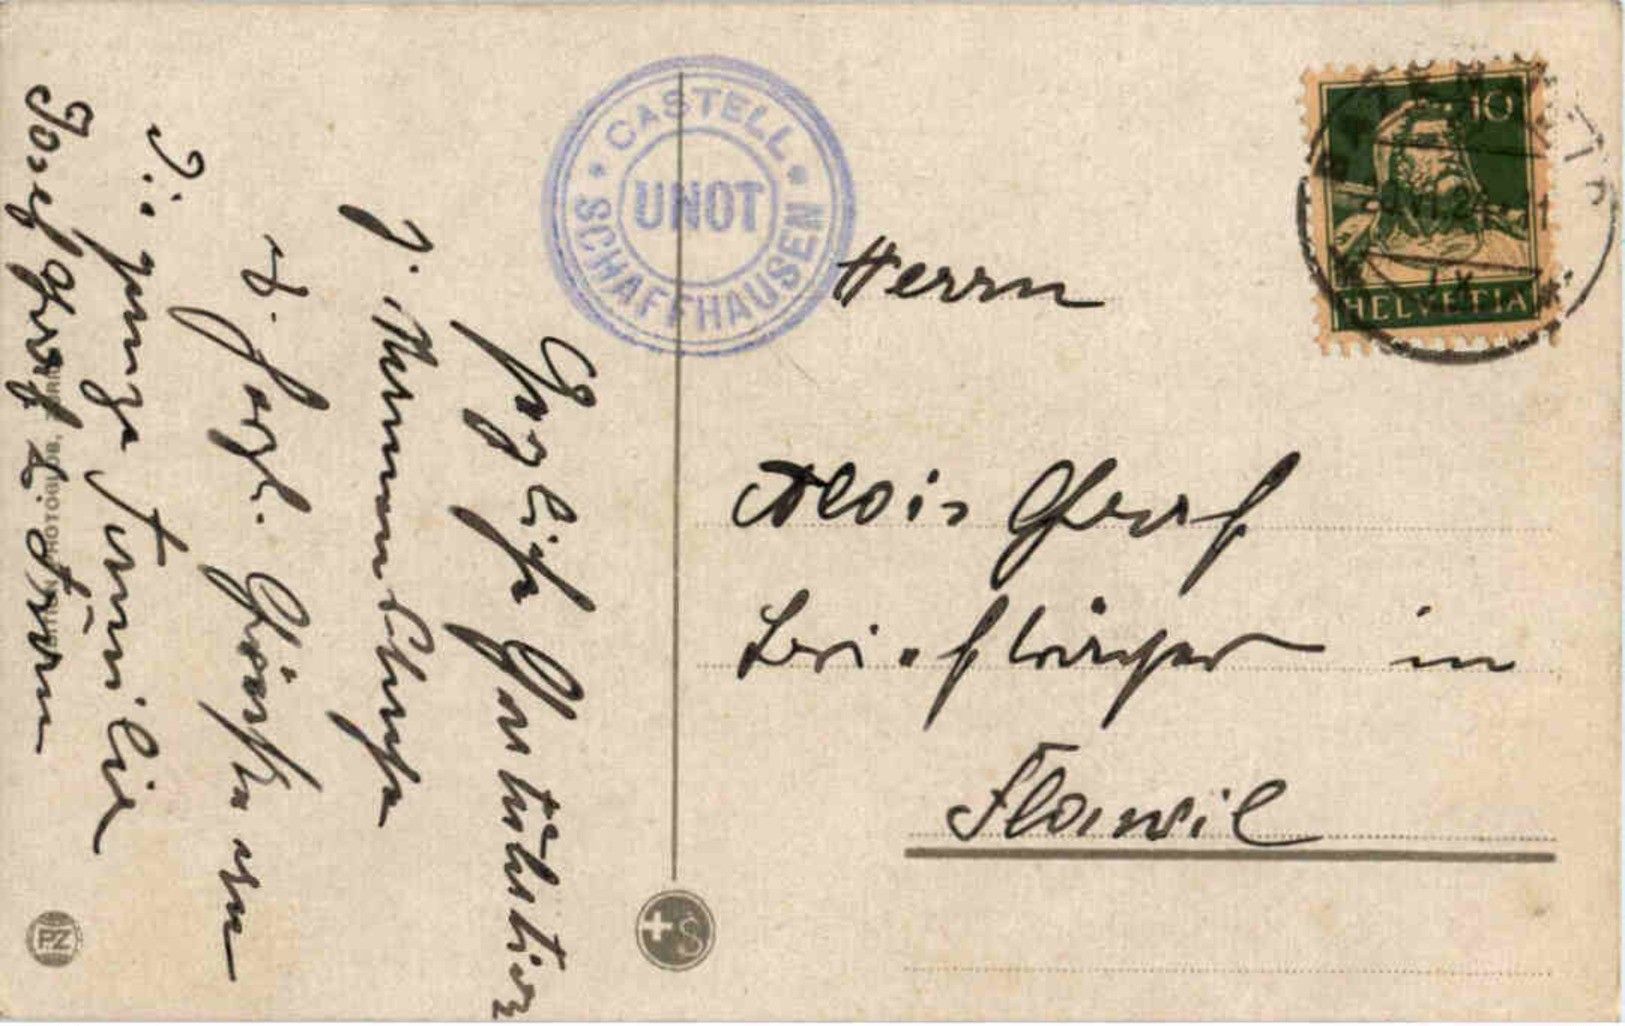 CASTELL
UNOT
SCHAFFHAUSEN
10
HELVETIA
Herrn
Alois Graf
Briefträger in
Flawil
Herzliche Gratulation
z. Namensfeste
& herzl. Grüsse an
die ganze Familie
Josef Graf
PZ
S